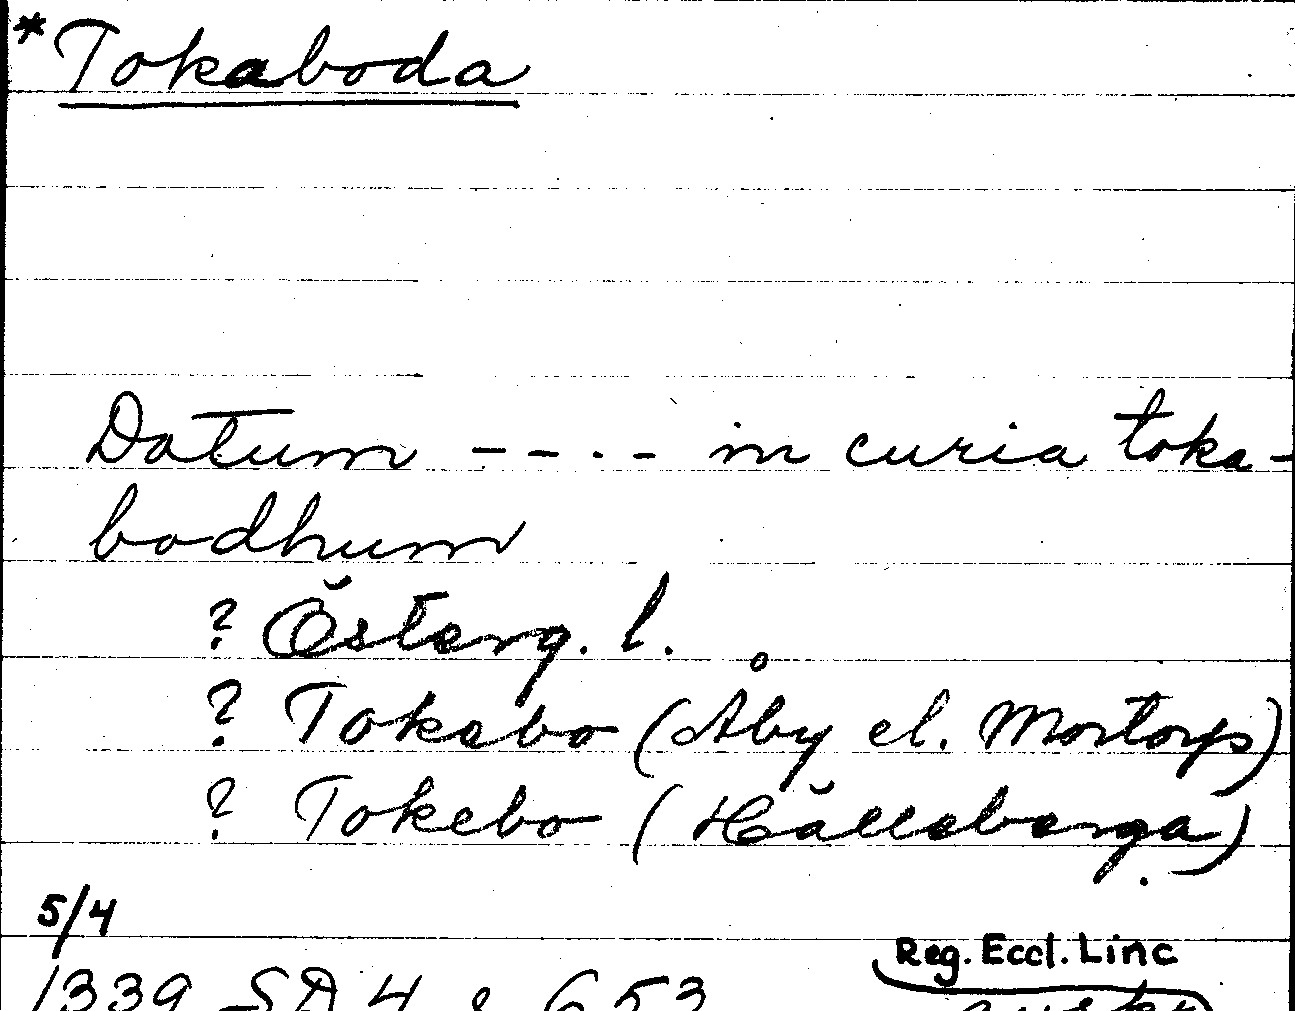 *Tokaboda
Datum ----- in curia toka-
bodhum
? Österg. l.
? Tokebo (Åby el. Mortorp)
? Tokebo (Hälleberga)
5/4
Reg. Eccl. Linc
1339 SD 4 s 653